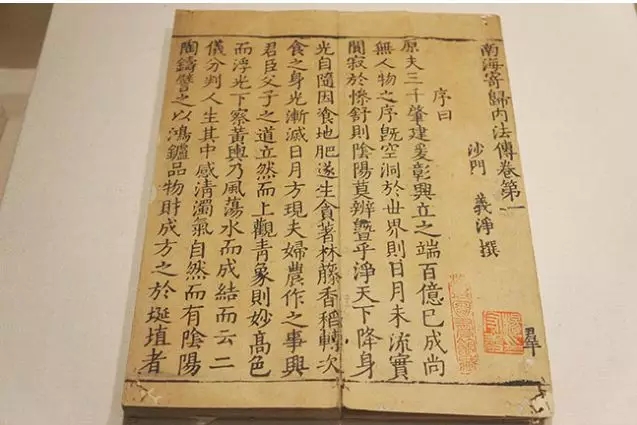 南海寄歸內法傳卷第一
羣
沙門 義淨 撰
序曰
原夫三千肇建爰彰興立之端百億已成尚
無人物之序旣空洞於世界則日月未流實
闃寂於慘舒則陰陽莫辨曁乎淨天下降身
光自隨因飡地肥遂生貪著林藤香稻轉次
食之身光漸滅日月方現夫婦農作之事興
君臣父子之道立然而上觀青象則妙高色
而浮光下察黃輿乃風蕩水而成結而云二
儀分判人生其中感清濁氣自然而有陰陽
陶鑄譬之以鴻鑪品物財成方之於埏埴者